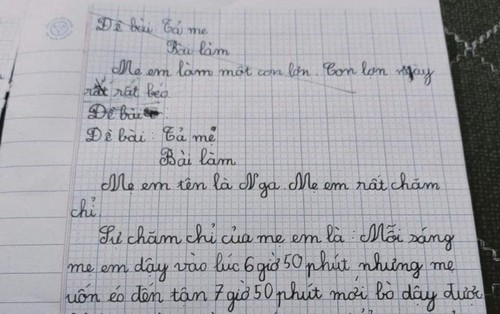 Đề bài: Tả mẹ
Bài làm
Mẹ em làm một con lợn. Con lợn này
rất rất béo
Đề bài
Đề bài: Tả mẹ
Bài làm
Mẹ em tên là Nga. Mẹ em rất chăm
chỉ.
Sự chăm chỉ của mẹ em là: Mỗi sáng
mẹ em dậy vào lúc 6 giờ 50 phút nhưng mẹ
uốn éo đến tận 7 giờ 50 phút mới bò dậy được